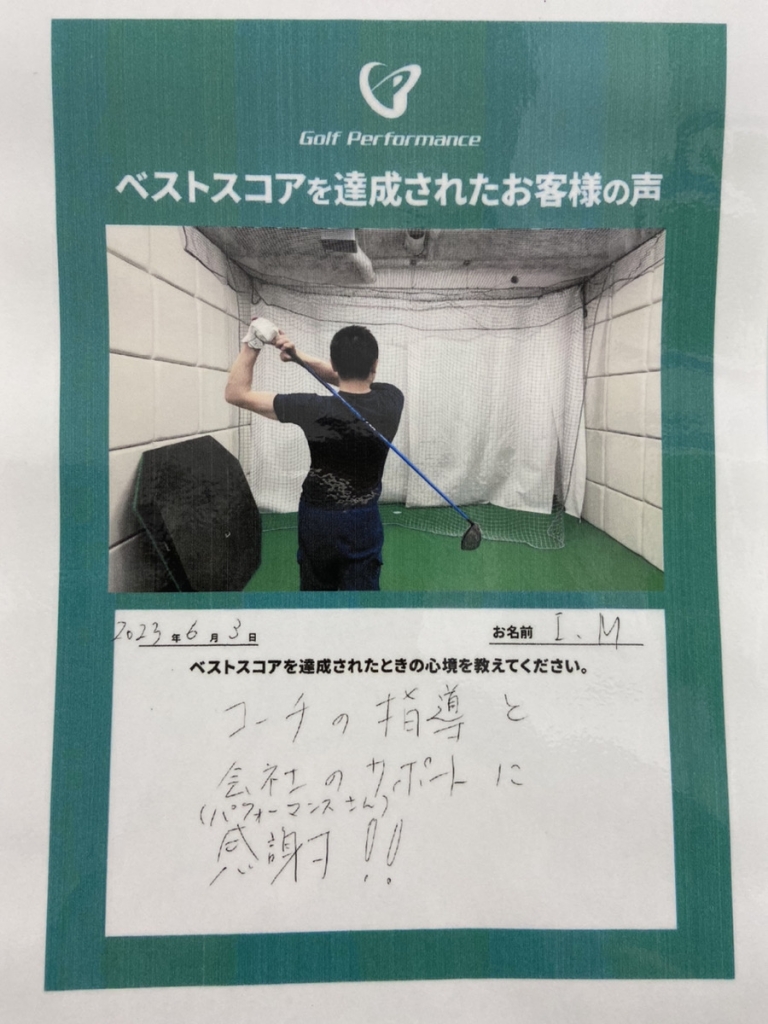 Golf Performance
ベストスコアを達成されたお客様の声
2023年6月3日 お名前 I.M
ベストスコアを達成されたときの心境を教えてください。
コーチの指導と
会社のサポートに
(パフォーマンスさん)
感謝!!